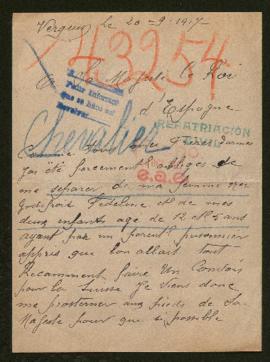 Vergu le 20-9-1917-
43254
A Sa Majesté le Roi
d'Espagne
Pedir informes
que se hace así
Chevalier
REPATRIACIÓN
J'ai été forcement obligés de
me séparer de ma femme née
Federine et de mes
deux enfants agé de 12 et 5 ans
ayant pas un parent prisonnier
appris que l'on allait tout
Recamment faire un Convois
pour la Suisse je viens donc
me prosterner aux pieds de Sa
Majesté pour que si possible